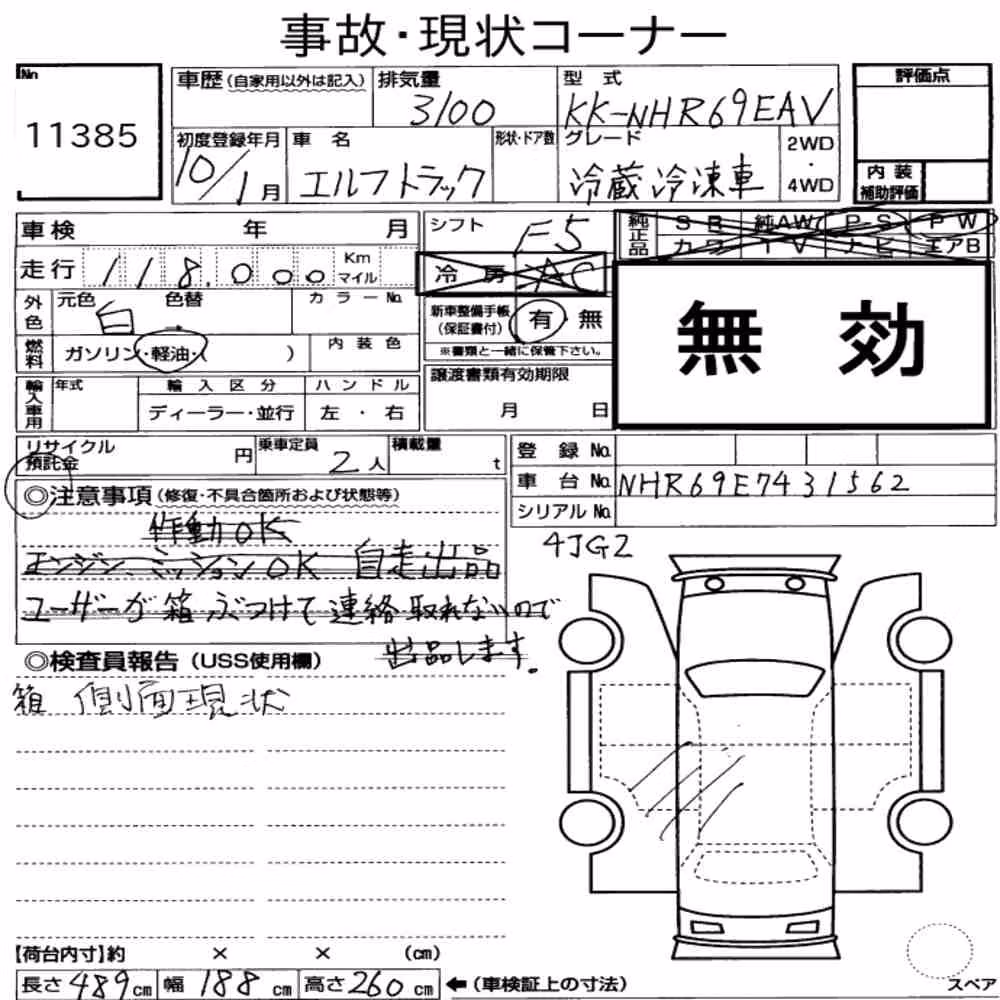 事故・現状コーナー
No
11385
車歴 (自家用以外は記入)
排気量
3100
型式
KK-NHR69EAV
評価点
初度登録年月
10/1月
車名
エルフトラック
形状・ドア数
グレード
冷蔵冷凍車
2WD
・
4WD
内装
補助評価
車検 年 月
シフト
F5
純正品
SR 純AW P・S PW
カワ TV ナビ エアB
走行 118,000 Km マイル
冷房 AC
外色
元色 色替
白 →
カラーNo.
新車整備手帳
(保証書付)
有 無
※書類と一緒に保管下さい。
無効
燃料
ガソリン・軽油・( )
内装色
輸入車用
年式
輸入区分
ディーラー・並行
ハンドル
左・右
譲渡書類有効期限
月 日
リサイクル
預託金
円
乗車定員
2人
積載量
t
登録No.
車台No. NHR69E7431562
シリアルNo.
◎注意事項(修復・不具合箇所および状態等)
作動OK
エンジン、ミッションOK 自走出品
ユーザーが箱ぶつけて連絡取れないので
出品します.
4JG2
◎検査員報告(USS使用欄)
箱 側面現状
【荷台内寸】約 × × (cm)
長さ 489cm 幅 188cm 高さ 260cm ←(車検証上の寸法)
スペア